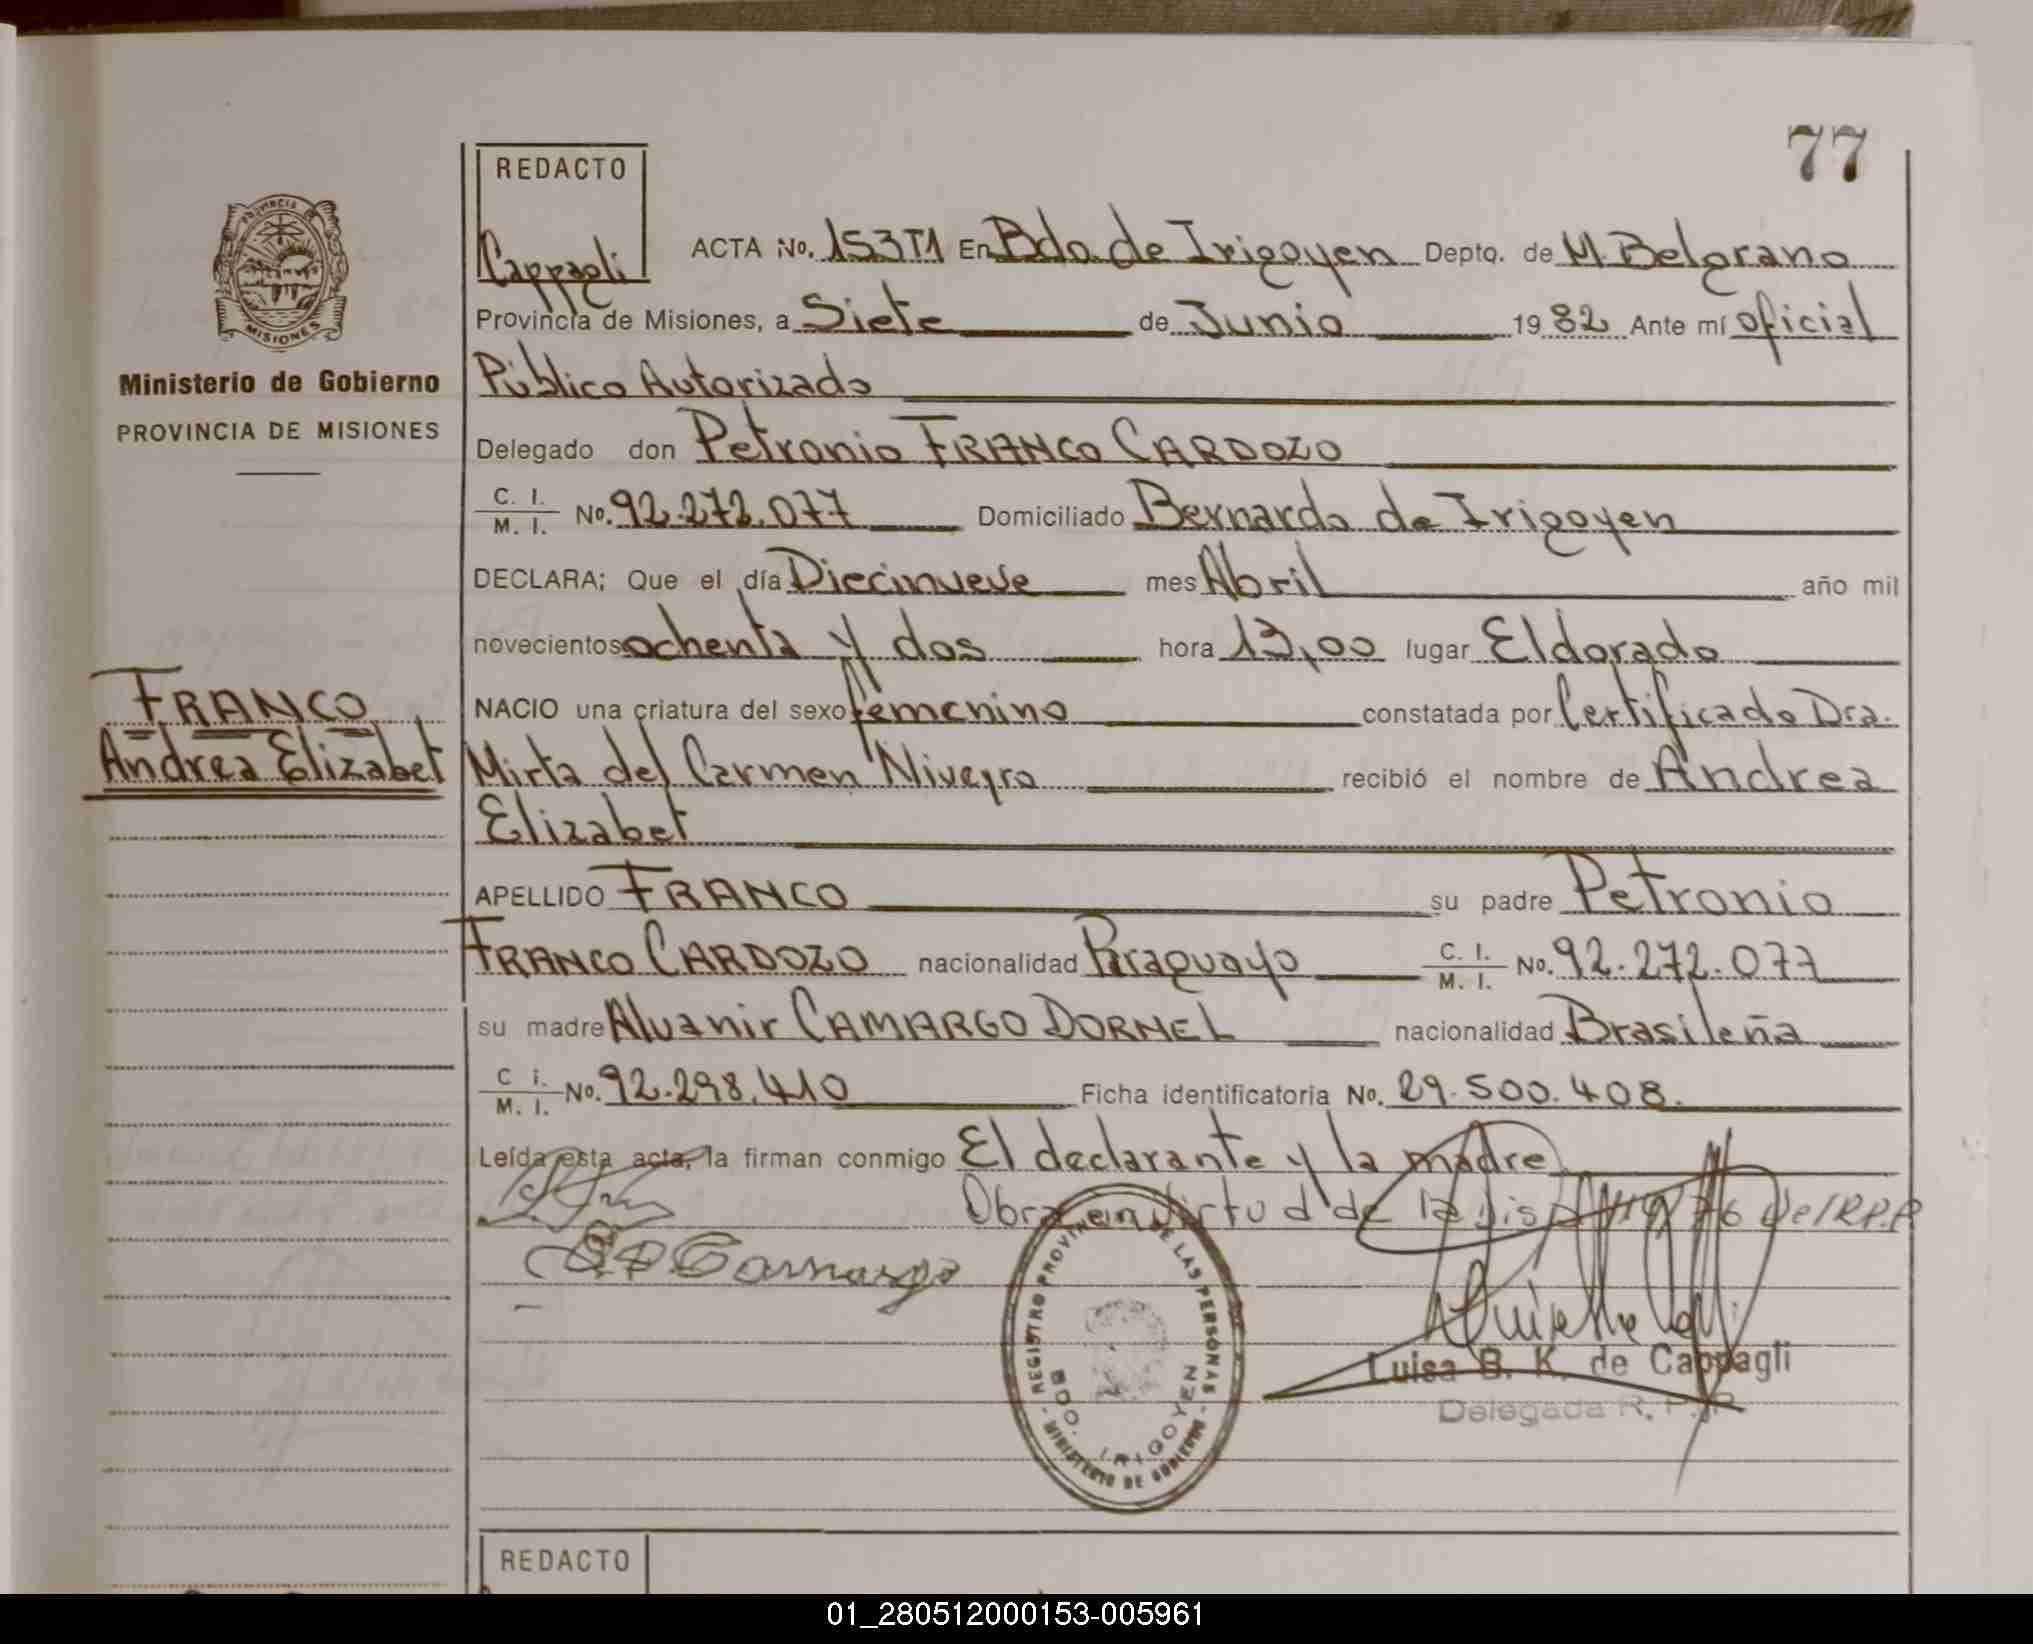 77
REDACTO
Cappagli
ACTA No. 153T1 En Bdo. de Irigoyen Depto. de M. Belgrano
Provincia de Misiones, a Siete de Junio 1982 Ante mí oficial
Público Autorizado
Delegado don Petronio FRANCO CARDOZO
C. I. / M. I. No. 92.272.077 Domiciliado Bernardo de Irigoyen
DECLARA; Que el día Diecinueve mes Abril año mil
novecientos ochenta y dos hora 13,00 lugar Eldorado
NACIO una criatura del sexo femenino constatada por Certificado Dra.
Mirta del Carmen Niveyro recibió el nombre de Andrea
Elizabet
APELLIDO FRANCO su padre Petronio
FRANCO CARDOZO nacionalidad Paraguayo C. I. / M. I. No. 92.272.077
su madre Alvanir CAMARGO DORNEL nacionalidad Brasileña
C i. / M. I. No. 92.298.410 Ficha identificatoria No. 29.500.408.
Leída esta acta, la firman conmigo El declarante y la madre
Obra en virtud de la Disp. 76 del R.P.P
Camargo
Luisa B. K. de Cappagli
Delegada R. P. P.
REGISTRO PROVINCIAL DE LAS PERSONAS - MINISTERIO DE GOBIERNO -
BDO. IRIGOYEN
PROVINCIA
MISIONES
Ministerio de Gobierno
PROVINCIA DE MISIONES
FRANCO
Andrea Elizabet
REDACTO
01_280512000153-005961